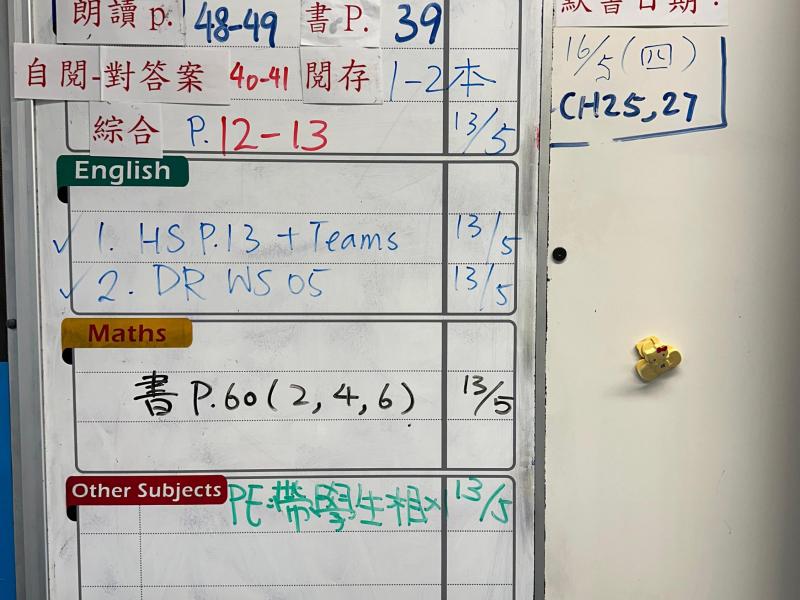 朗讀 p. 48-49 書 P. 39
自閱-對答案 40-41 閱存 1-2本
綜合 P. 12-13 13/5
English
1. HS P.13 + Teams 13/5
2. DR WS 05 13/5
Maths
書 P.60 (2, 4, 6) 13/5
Other Subjects PE:帶學生相x1 13/5
默書日期:
16/5 (四)
CH25, 27